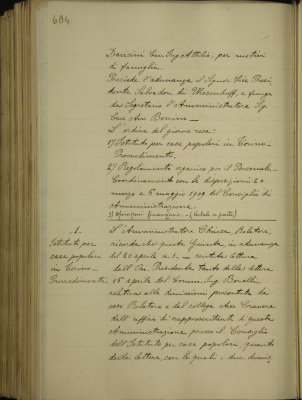 684
Cav. Ing. Attilio, per motivi
di famiglia.
Presiede l'adunanza il Signor Vice Presi
dente Salvadori di Wiesenhoff, e funge
da Segretario l'Amministratore Sig.
Cav. Avv. Bonino —
L'ordine del giorno reca:
1) Istituto per case popolari in Torino -
Provvedimenti.
2) Regolamento organico per il Personale -
Coordinamento con le disposizioni 20
marzo e 5 maggio 1909 del Consiglio di
Amministrazione.
3) Operazioni finanziarie - (Verbale a parte)
.1.
Istituto per
case popolari
in Torino -
Provvedimenti
L'Amministratore Relatore,
ricorda che questa Giunta, in adunanza
del 20 aprile u. s. — sentita lettura
dell'On. Presidente tanto della lettera
15 aprile del Comm. Ing.
relativa alle dimissioni presentate da
esso Relatore e dal collega
dall'ufficio di rappresentanti di questa
Amministrazione presso il Consiglio
dell'Istituto per case popolari, quanto
della lettera, con le quali i due dimis